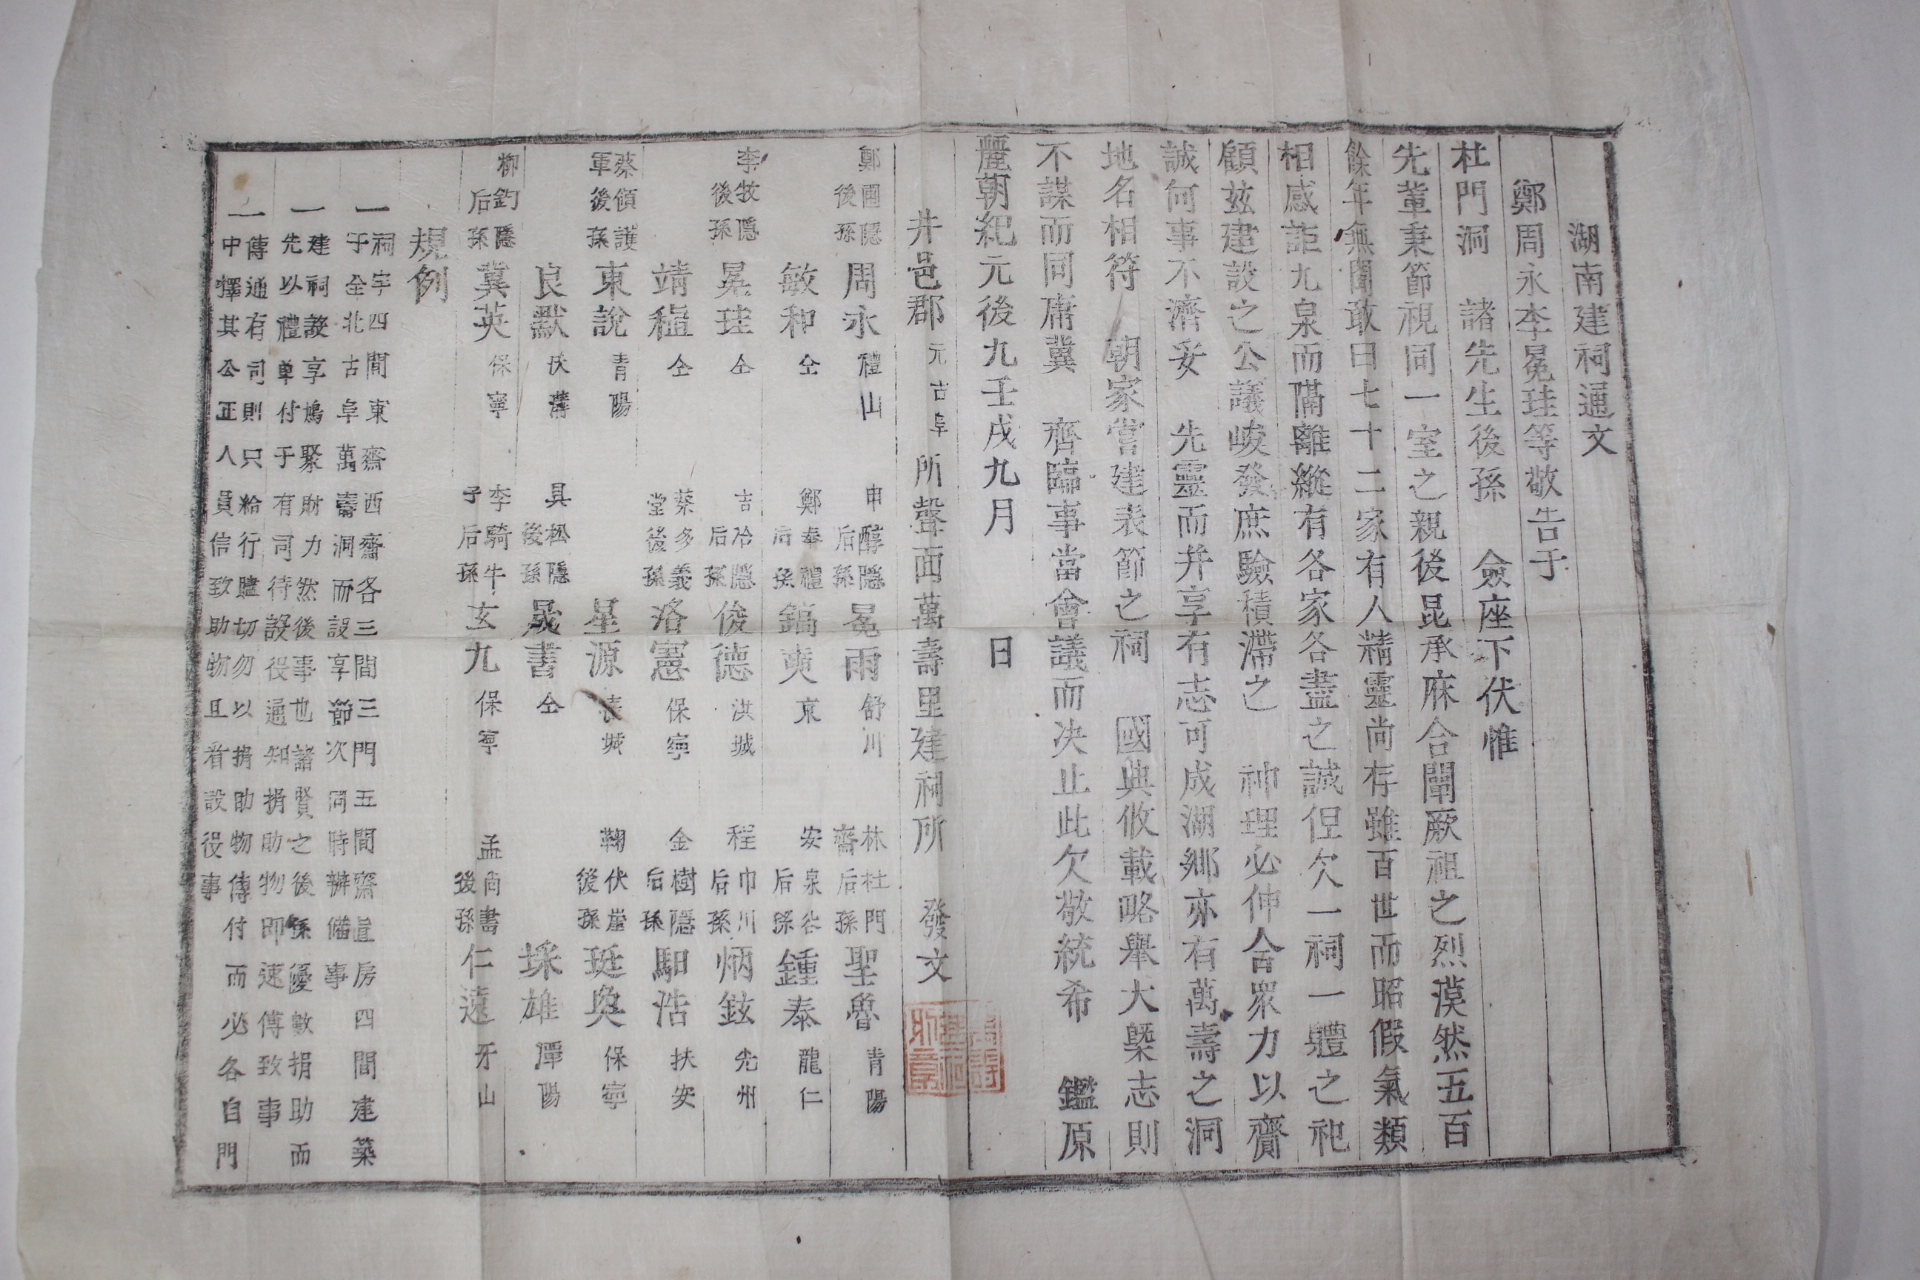 湖南建祠通文
鄭周永李冕珪等敬告于
杜門洞　諸先生後孫　僉座下伏惟
先輩秉節視同一室之親後昆承庥合闡厥祖之烈漠然五百
餘年無聞敢曰七十二家有人精靈尚存雖百世而昭假氣類
相感詎九泉而隔離縱有各家各盡之誠但欠一祠一軆之祀
顧玆建設之公議峻發庶驗積滯之　神理必伸合眾力以齎
誠何事不濟妥　先靈而幷享有志可成湖鄉亦有萬壽之洞
地名相符　朝家嘗建表節之祠　國典攸載略舉大槩志則
不謀而同庸冀　齊臨事當會議而决止此欠敬統希　鑑原
麗朝紀元後九壬戌九月　　日
井邑郡元古阜所聲面萬壽里建祠所　發文
鄭圃隱後孫周永禮山　申醇隱后孫冕雨舒川　林杜門齋后孫聖魯青陽
敏和仝　鄭奉禮后孫鎬奭京　安泉谷后孫鍾泰龍仁
李牧隱後孫冕珪仝　吉冶隱后孫俊德洪城　程巾川后孫炳鉉光州
靖稙仝　蔡多義堂後孫洛憲保寧　金樹隱后孫馹浩扶安
蔡領護軍後孫東說青陽　星源長城　鞠伏崖後孫珽奐保寧
良默伏溝　具松隱後孫晟書仝　埰雄潭陽
柳釣隱后孫冀英保寧　李騎牛子后孫玄九保寧　孟尚書後孫仁遠牙山
規例
一祠宇四間東齋西齋各三間三門五間齋直房四間建築
于全北古阜萬壽洞而設享節次同時辦備事
一建祠設享鳩聚財力然後事也諸賢之後孫優數捐助而
先以禮單付于有司待設役通知捐助物卽速傳致事
一傳通有司則只給行贐切勿以捐助物傳付而必各自門
中擇其公正人員信致助物且看設役事